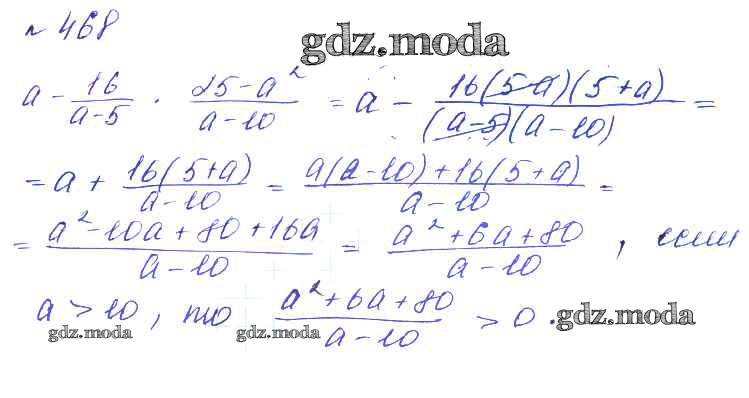 № 468
gdz.moda
a - 16/(a-5) · (25-a²)/(a-10) = a - 16(5-a)(5+a)/((a-5)(a-10)) =
= a + 16(5+a)/(a-10) = (a(a-10)+16(5+a))/(a-10) =
= (a²-10a+80+16a)/(a-10) = (a²+6a+80)/(a-10), если
a > 10, то (a²+6a+80)/(a-10) > 0. gdz.moda
gdz.moda gdz.moda